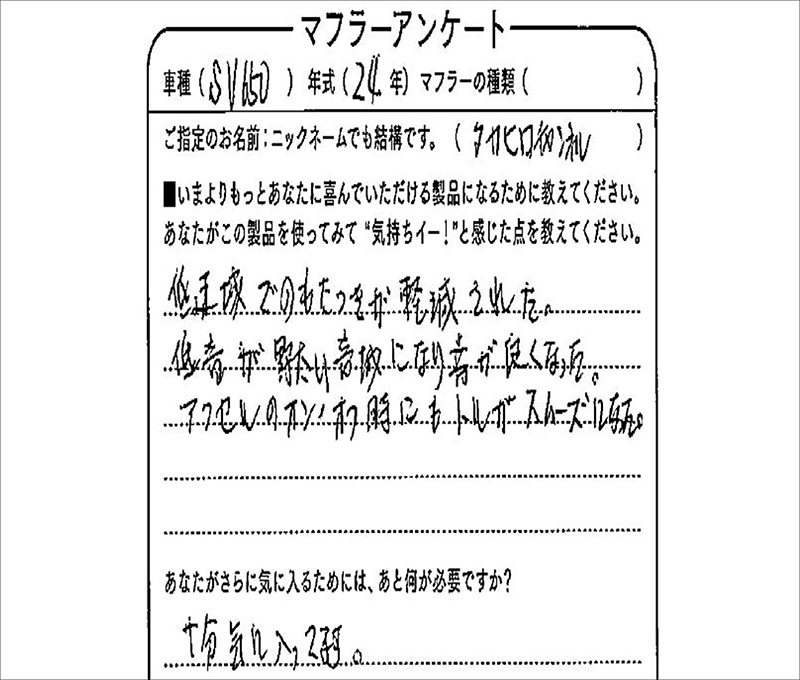 マフラーアンケート
車種(SV650)年式(24年)マフラーの種類( )
ご指定のお名前:ニックネームでも結構です。(タカヒロ )
■いまよりもっとあなたに喜んでいただける製品になるために教えてください。
あなたがこの製品を使ってみて“気持ちイー!”と感じた点を教えてください。
低速域でのもたつきが軽減された。
低音が野太い音域になり音が良くなった。
アクセルのオン・オフ時にもトルがスムーズになった。
あなたがさらに気に入るためには、あと何が必要ですか?
十分気に入ってる。